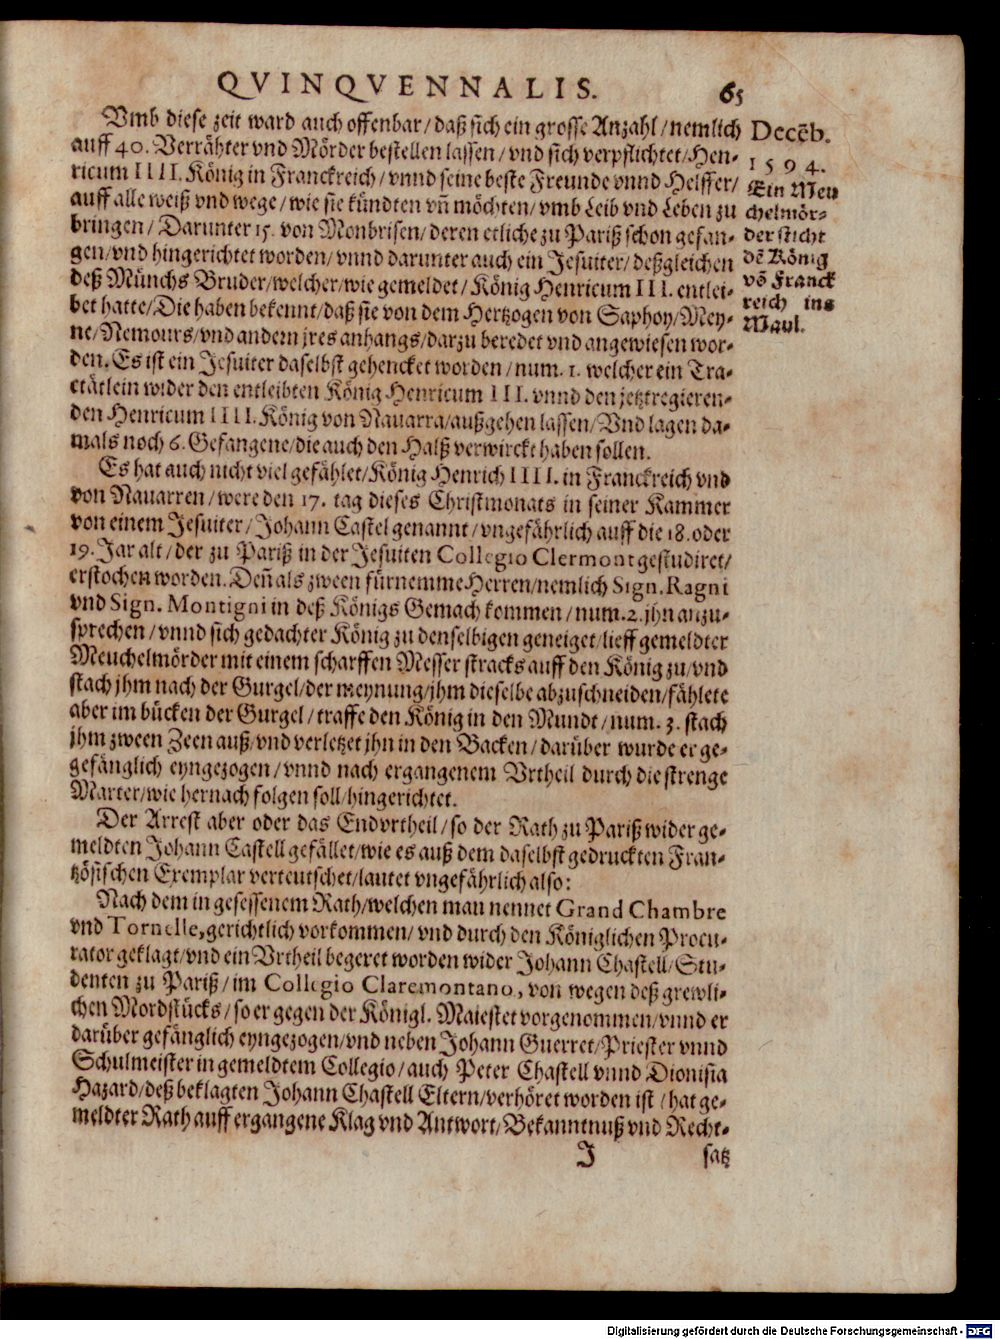 QVINQVENNALIS. 65
Vmb diese zeit ward auch offenbar/daß sich ein grosse Anzahl/nemlich
auff 40. Verrähter vnd Mörder bestellen lassen/vnd sich verpflichtet/Hen-
ricum IIII. König in Franckreich/vnnd seine beste Freunde vnnd Helffer/
auff alle weiß vnd wege/wie sie kündten vñ möchten/vmb Leib vnd Leben zu
bringen/Darunter 15. von Monbrisen/deren etliche zu Pariß schon gefan-
gen/vnd hingerichtet worden/vnnd darunter auch ein Jesuiter/deßgleichen
deß Münchs Bruder/welcher/wie gemeldet/König Henricum III. entlei-
bet hatte/Die haben bekennt/daß sie von dem Hertzogen von Saphoy/Mey-
ne/Nemours/vnd andern jres anhangs/darzu beredet vnd angewiesen wor-
den. Es ist ein Jesuiter daselbst gehencket worden/num. 1. welcher ein Tra-
ctätlein wider den entleibten König Henricum III. vnnd den jetztregieren-
den Henricum IIII. König von Nauarra/außgehen lassen/Vnd lagen da-
mals noch 6. Gefangene/die auch den Halß verwirckt haben sollen.
Es hat auch nicht viel gefählet/König Henrich IIII. in Franckreich vnd
von Nauarren/were den 17. tag dieses Christmonats in seiner Kammer
von einem Jesuiter/Johann Castel genannt/vngefährlich auff die 18. oder
19. Jar alt/der zu Pariß in der Jesuiten Collegio Clermont gestudiret/
erstochen worden. Deñ als zween fürnemme Herren/nemlich Sign. Ragni
vnd Sign. Montigni in deß Königs Gemach kommen/num. 2. jhn anzu-
sprechen/vnnd sich gedachter König zu denselbigen geneiget/lieff gemeldter
Meuchelmörder mit einem scharffen Messer stracks auff den König zu/vnd
stach jhm nach der Gurgel/der meynung/jhm dieselbe abzuschneiden/fählete
aber im bücken der Gurgel/traffe den König in den Mundt/num. 3. stach
jhm zween Zeen auß/vnd verletzet jhn in den Backen/darüber wurde er ge-
gefänglich eyngezogen/vnnd nach ergangenem Vrtheil durch die strenge
Marter/wie hernach folgen soll/hingerichtet.
Der Arrest aber oder das Endvrtheil/so der Rath zu Pariß wider ge-
meldten Johann Castell gefället/wie es auß dem daselbst gedruckten Fran-
tzösischen Exemplar verteutschet/lautet vngefährlich also:
Nach dem in gesessenem Rath/welchen man nennet Grand Chambre
vnd Tornelle, gerichtlich vorkommen/vnd durch den Königlichen Procu-
rator geklagt/vnd ein Vrtheil begeret worden wider Johann Chastell/Stu-
denten zu Pariß/im Collegio Claremontano, von wegen deß grewli-
chen Mordstücks/so er gegen der Königl. Maiestet vorgenommen/vnnd er
darüber gefänglich eyngezogen/vnd neben Johann Guerret/Priester vnnd
Schulmeister in gemeldtem Collegio/auch Peter Chastell vnnd Dionisia
Hazard/deß beklagten Johann Chastell Eltern/verhöret worden ist/hat ge-
meldter Rath auff ergangene Klag vnd Antwort/Bekanntnuß vnd Recht-
J satz
Decēb.
1594.
Ein Meu
chelmör-
der sticht
dē König
vō Franck
reich ins
Maul.
Digitalisierung gefördert durch die Deutsche Forschungsgemeinschaft - DFG